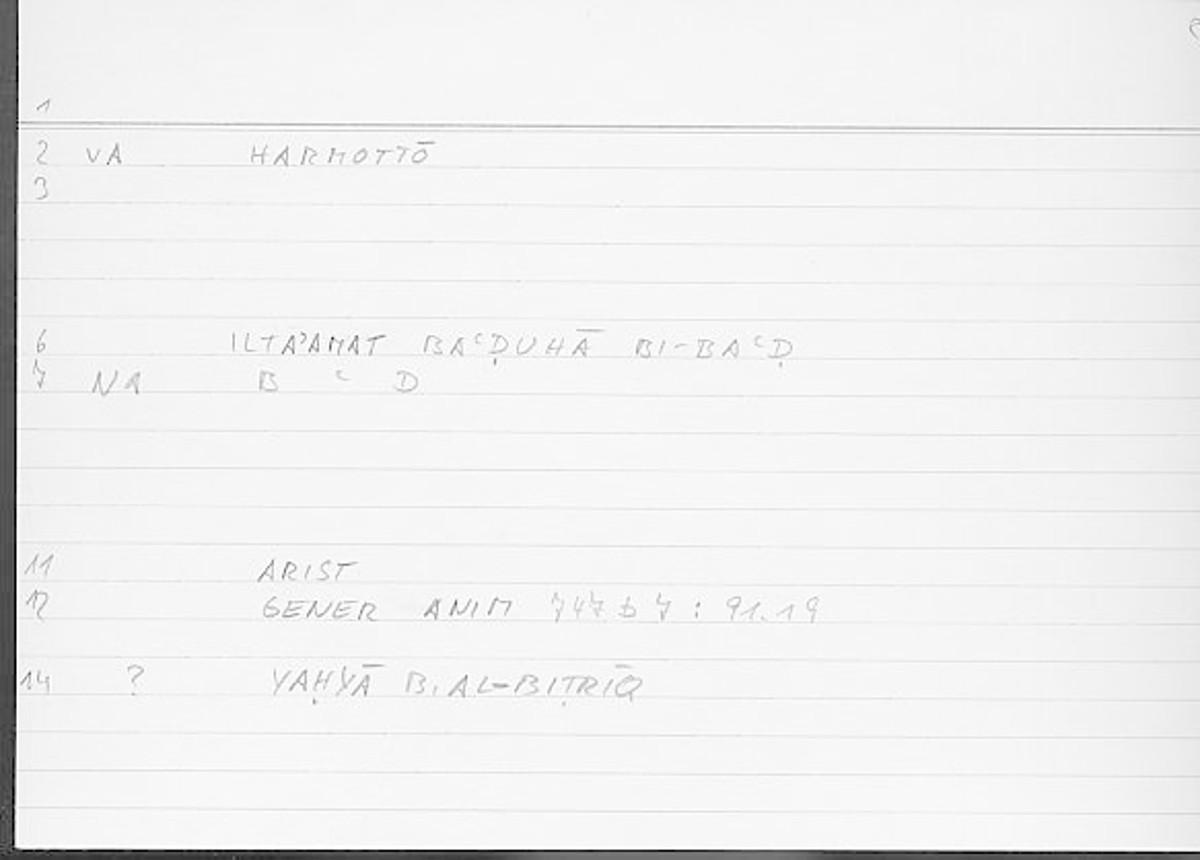 1
2 VA HARMOTTŌ
3
6 ILTAʾAMAT BAʿḌUHĀ BI-BAʿḌ
7 NA B ʿ D
11 ARIST
12 GENER ANIM 747 b 7 : 91.19
14 ? YAḤYĀ B. AL-BIṬRĪQ